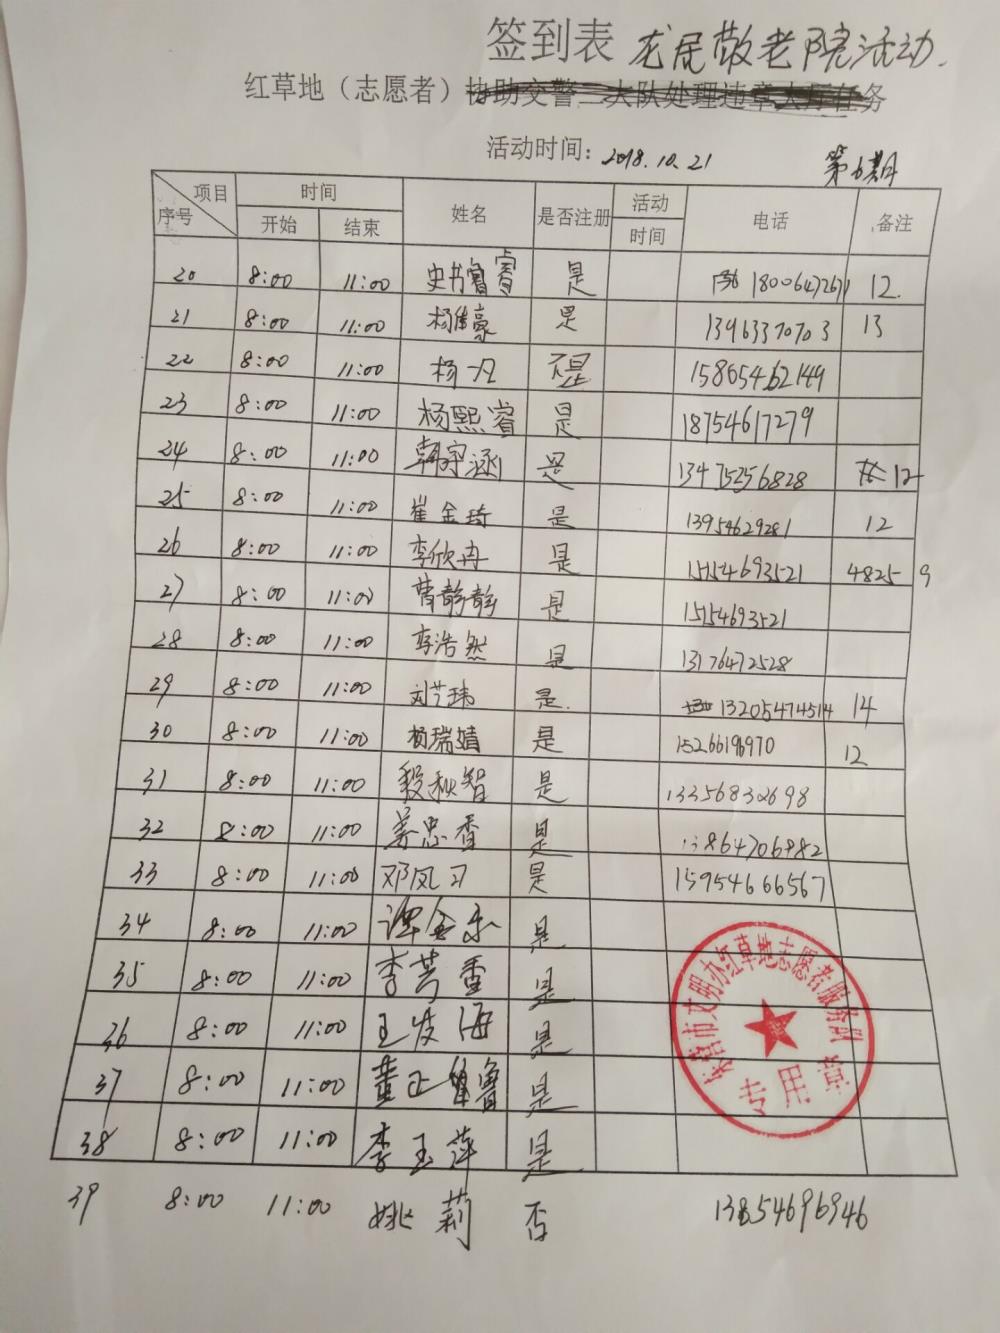 签到表 龙居敬老院活动.
红草地（志愿者）协助交警二大队处理违章大厅任务
活动时间：2018.10.21 第6期
项目 序号 时间 开始 结束 姓名 是否注册 活动时间 电话 备注
20 8:00 11:00 史书睿 是 18006472671 12.
21 8:00 11:00 杨 豪 是 13963370703 13
22 8:00 11:00 杨一凡 不是 15865462149
23 8:00 11:00 杨熙睿 是 18754617279
24 8:00 11:00 韩宇涵 是 13475256828 12
25 8:00 11:00 崔金琦 是 13954629281 12
26 8:00 11:00 李欣冉 是 15154693521 4825 9
27 8:00 11:00 曹静静 是 15154693521
28 8:00 11:00 李浩然 是 13176472528
29 8:00 11:00 刘芳玮 是. 13205474514 14
30 8:00 11:00 杨瑞婧 是 15266196970 12
31 8:00 11:00 殷秋智 是 13356832698
32 8:00 11:00 姜忠香 是 13864706982
33 8:00 11:00 邓凤习 是 15954666567
34 8:00 11:00 谭金 是
35 8:00 11:00 李芳香 是
36 8:00 11:00 王 海 是
37 8:00 11:00 黄正 鲁 是
38 8:00 11:00 李玉萍 是
东营市文明办红草地志愿者服务队
专用章
39 8:00 11:00 姚莉 否 13854696946